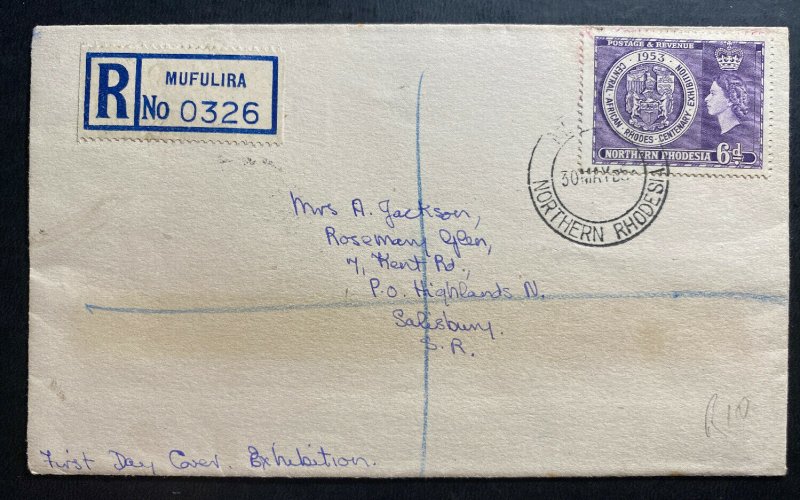 R
MUFULIRA
No 0326
POSTAGE & REVENUE
1953
CENTRAL · AFRICAN RHODES · CENTENARY EXHIBITION
NORTHERN RHODESIA 6d
30 MAY
NORTHERN RHODESIA
Mrs A. Jackson,
Rosemary Glen,
7, Kent Rd.,
P.O. Highlands N.
Salisbury.
S.R.
R10
First Day Cover. Exhibition.